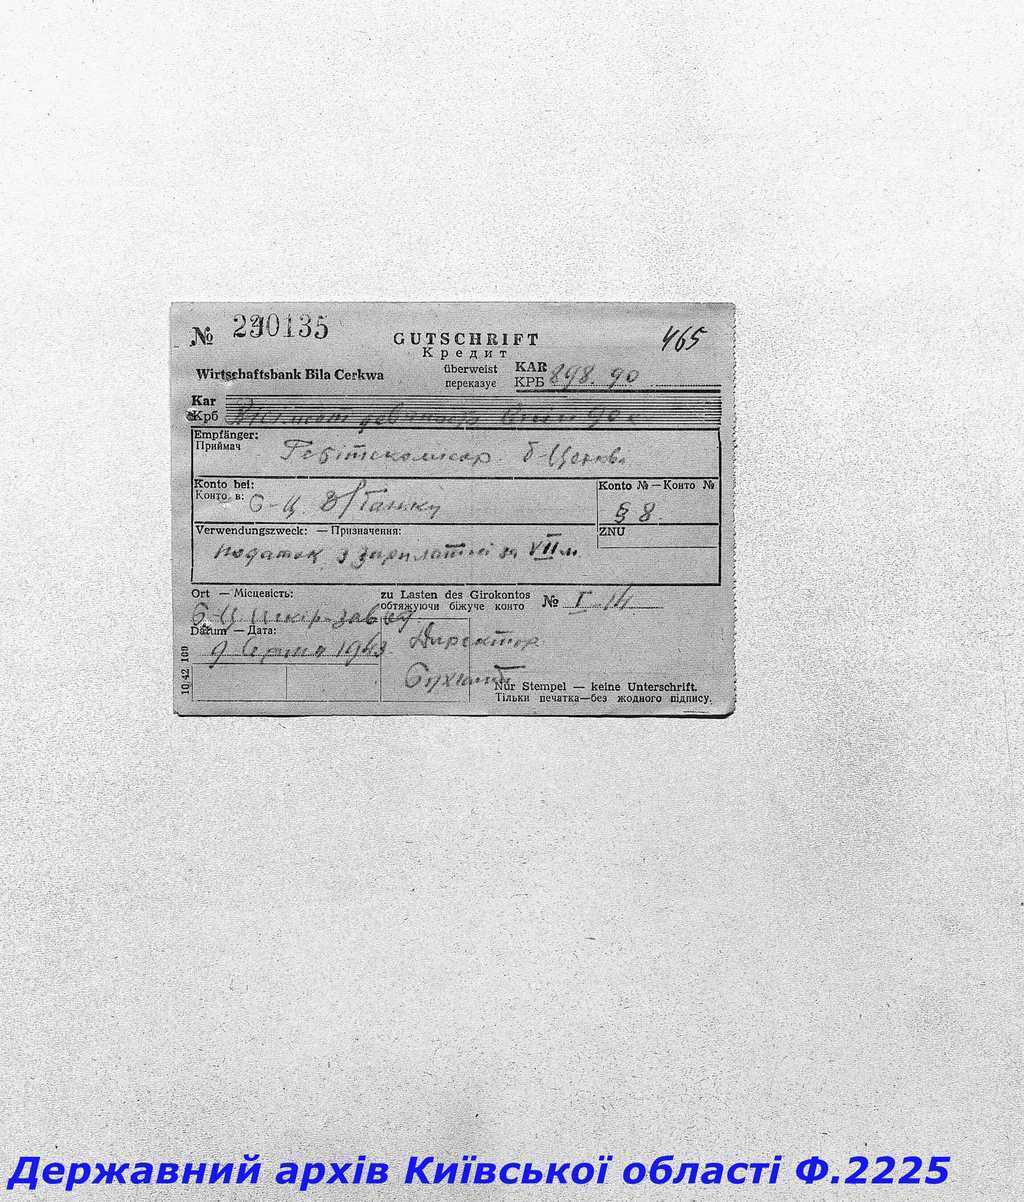 № 290135
GUTSCHRIFT
Кредит
465
Wirtschaftsbank Bila Cerkwa
überweist
переказує
KAR
КРБ 898. 90
Kar
Крб Вісімсот девяносто вісім 90 к
Empfänger:
Приймач
Гебітскомісар. Б-Церкви
Konto bei:
Конто в: Б-Ц. В/банку
Konto № — Конто №
§ 8.
Verwendungszweck: — Призначення:
ZNU
податок з зарплатні за VII м.
Ort — Місцевість:
zu Lasten des Girokontos
обтяжуючи біжуче конто
№
Б-Ц. Шкір-завод
Datum — Дата:
9 Серпня 1943
Директор
Бухгалт
Nur Stempel — keine Unterschrift.
Тільки печатка—без жодного підпису.
10/42 100
Державний архів Київської області Ф.2225